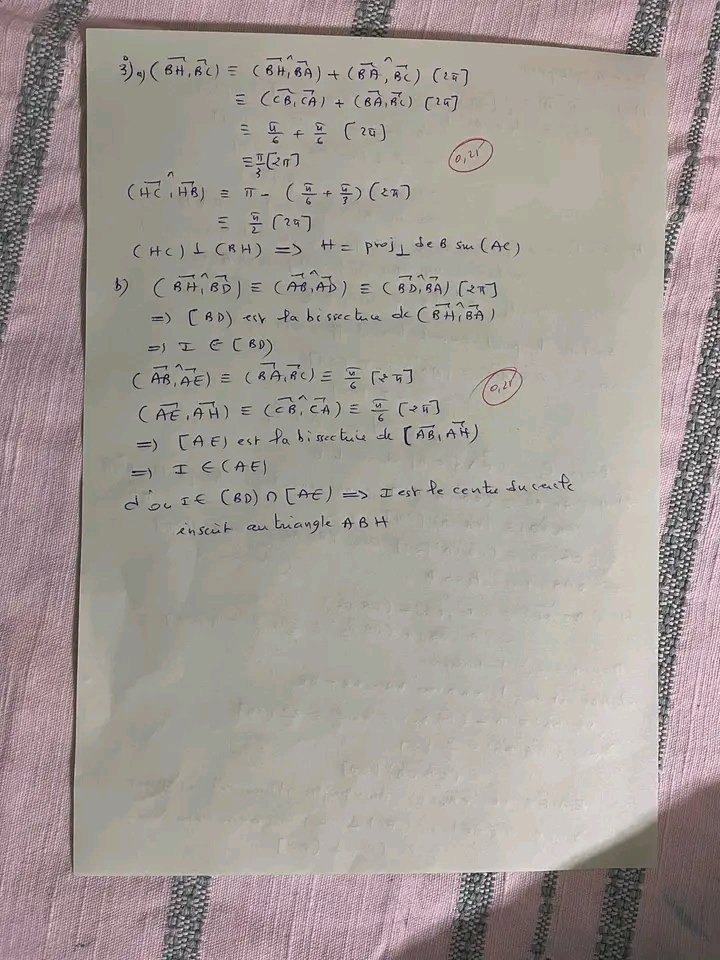 3°) a) (BH→, BC→) ≡ (BH→^, BA→) + (BA→^, BC→) [2π]
≡ (CB→, CA→) + (BA→, BC→) [2π]
≡ π/6 + π/6 [2π]
≡ π/3 [2π]
0,25
(HC→^, HB→) ≡ π - (π/6 + π/3) [2π]
≡ π/2 [2π]
(HC) ⊥ (BH) => H = proj⊥ de B sur (AC)
b) (BH→^, BD→) ≡ (AB→^, AD→) ≡ (BD→^, BA→) [2π]
=> [BD) est la bissectrice de (BH→^, BA→)
=> I ∈ [BD)
(AB→^, AE→) ≡ (BA→, BC→) ≡ π/6 [2π]
0,25
(AE→, AH→) ≡ (CB→^, CA→) ≡ π/6 [2π]
=> [AE) est la bissectrice de [AB→, AH→)
=> I ∈ (AE)
d'où I ∈ [BD) ∩ [AE) => I est le centre du cercle
inscrit au triangle ABH